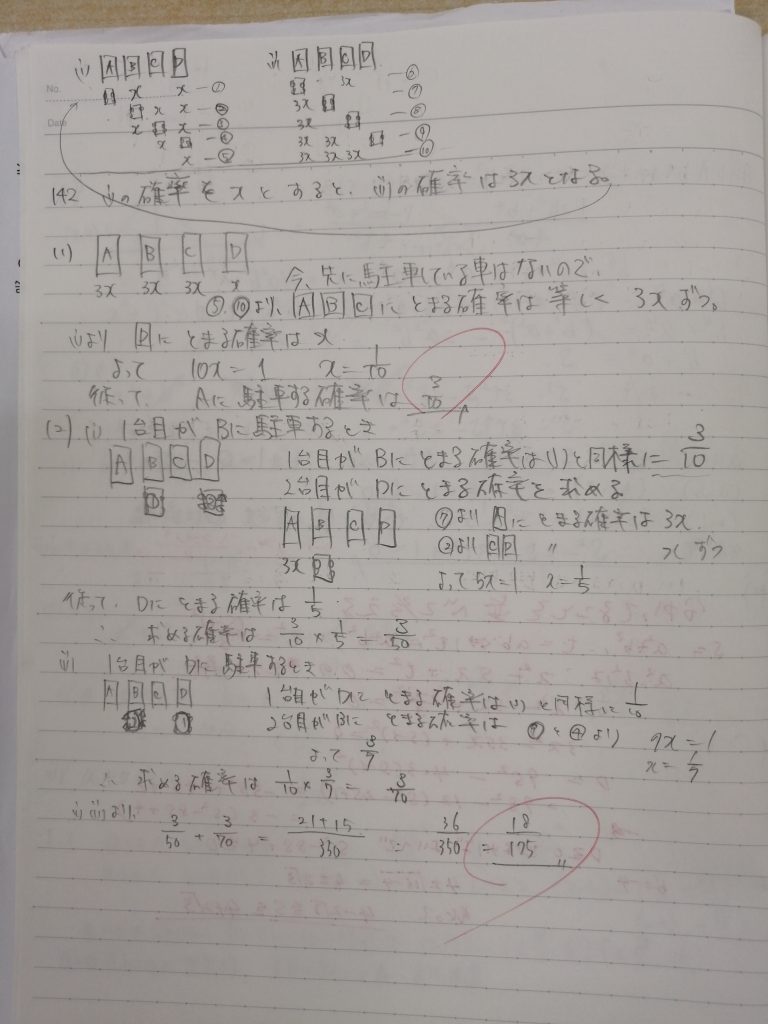 i) A B C D ii) A B C D
No.
x x ー① 3x ー⑥
Date x x ー② 3x ー⑦
x x ー③ 3x ー⑧
x ー④ 3x 3x ー⑨
x ー⑤ 3x 3x 3x ー⑩
142 i)の確率をxとすると、ii)の確率は3xとなる。
(1) A B C D
3x 3x 3x x 今、先に駐車している車はないので、
⑤、⑩より、A B Cにとまる確率は等しく 3xずつ。
i)より Dにとまる確率は x
よって 10x=1 x=1/10
従って、Aに駐車する確率は 3/10
(2) (i) 1台目がBに駐車するとき
A B C D 1台目がBにとまる確率は(1)と同様に 3/10
2台目がDにとまる確率を求める
A B C D ⑦より Aにとまる確率は 3x.
3x ②より C D 〃 xずつ
よって 5x=1 x=1/5
従って、Dにとまる確率は 1/5
∴ 求める確率は 3/10 × 1/5 = 3/50
ii) 1台目がDに駐車するとき
A B C D 1台目がDにとまる確率は(1)と同様に 1/10
2台目がBにとまる確率は ⑨と④より 7x=1
よって 3/7 x=1/7
∴ 求める確率は 1/10 × 3/7 = 3/70
i) ii)より、
3/50 + 3/70 = 21+15/350 = 36/350 = 18/175 〃